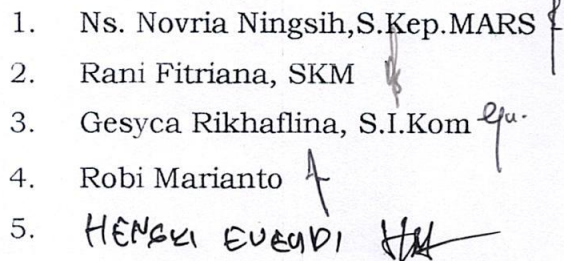 1. Ns. Novria Ningsih,S.Kep.MARS
2. Rani Fitriana, SKM
3. Gesyca Rikhaflina, S.I.Kom
4. Robi Marianto
5. HENGKI